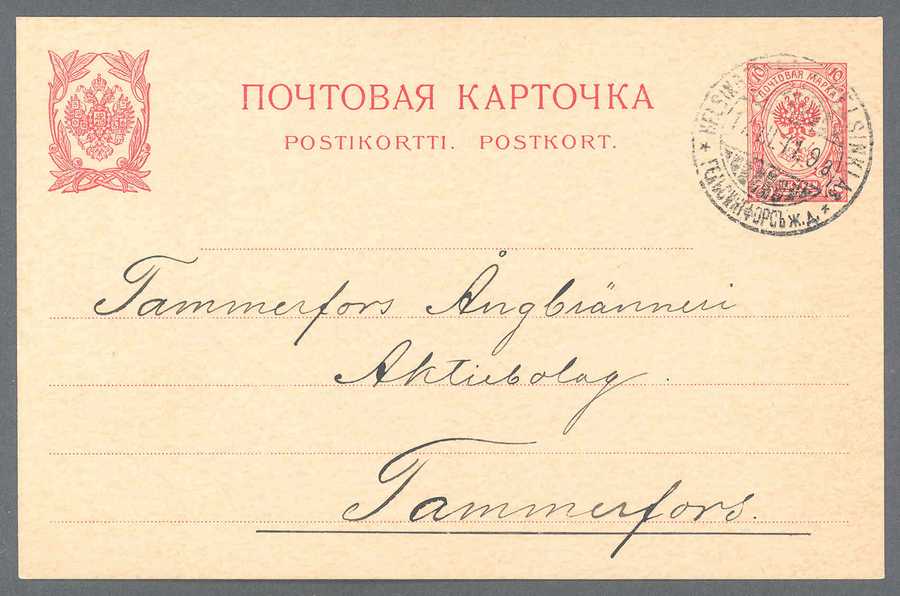 ПОЧТОВАЯ КАРТОЧКА
POSTIKORTTI. POSTKORT.
10 ПОЧТОВАЯ МАРКА 10
ГЕЛЬСИНГФОРСЪ Ж.Д.
Tammerfors Ångbränneri
Aktiebolag.
Tammerfors.